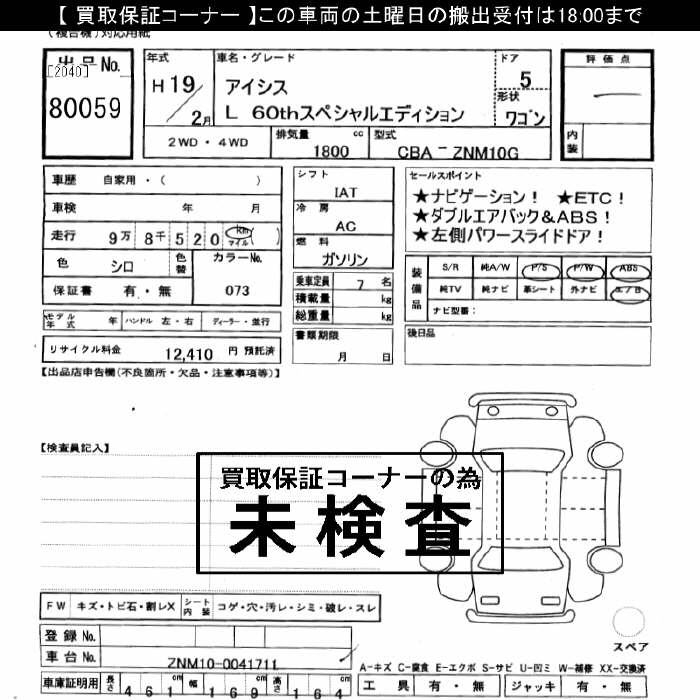 【 買取保証コーナー 】この車両の土曜日の搬出受付は18:00まで
(複合機)対応用紙
出品No.
[2040]
80059
年式
H 19/2月
車名・グレード
アイシス
L 60thスペシャルエディション
ドア
5
形状
ワゴン
評価点
内装
2WD・4WD
排気量
1800 cc
型式
CBA - ZNM10G
車歴 自家用・( )
車検 年 月
走行 9万 8千 5 2 0 km マイル ( )
色 シロ
色替
カラーNo.
073
保証書 有・無
シフト
IAT
冷房
AC
燃料
ガソリン
乗車定員 7 名
積載量 kg
総重量 kg
書類期限
月 日
セールスポイント
★ナビゲーション! ★ETC!
★ダブルエアバック&ABS!
★左側パワースライドドア!
装備品
S/R 純A/W P/S P/W ABS
純TV 純ナビ 革シート 外ナビ エ/B
ナビ型番:
後日品
モデル年式 年 ハンドル 左・右 ディーラー・並行
リサイクル料金 12,410 円 預託済
【出品店申告欄(不良箇所・欠品・注意事項等)】
【検査員記入】
買取保証コーナーの為
未検査
FW キズ・トビ石・割レX シート内装 コゲ・穴・汚レ・シミ・破レ・スレ
登録No.
車台No. ZNM10-0041711
スペア
A-キズ C-腐食 E-エクボ S-サビ U-凹ミ W-補修 XX-交換済
車庫証明用 長さ 461cm 幅 169cm 高さ 164cm
工具 有・無 ジャッキ 有・無